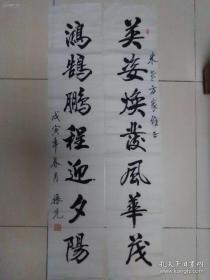 东荣方家雅正
英姿焕发风华茂
鸿鹄鹏程迎夕陽
戊寅年春月